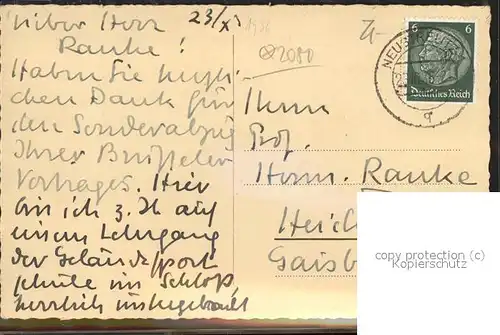 23/X
Lieber Herr
Ranke!
Haben Sie herzli-
chen Dank für
den Sonderabzug
Ihrer Brüsseler
Vortrages. Hier
bin ich z. Zt auf
einem Lehrgang
der Geländesport
schule im Schloß,
herrlich untergebracht
2080
Herrn
Prof.
Herm. Ranke
Heid
Gaisb
6 6
Deutsches Reich
copy protection (c)
Kopierschutz